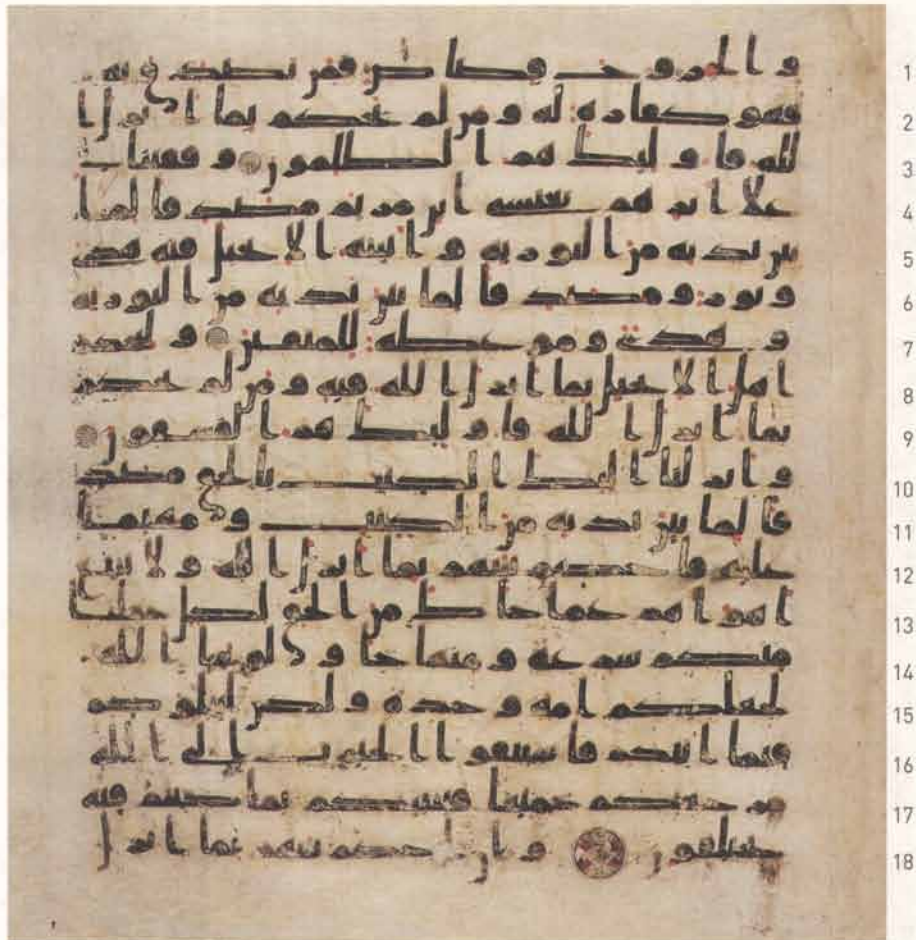 والجروح قصاص فمن تصدق به 1
فهو كفارة له ومن لم يحكم بما انزل ا 2
لله فاوليك هم الظلمون وقفينا 3
علا اثرهم بعيسى ابن مريم مصدقا لما 4
بين يديه من التوريه واتينه الانجيل فيه هدى 5
ونور ومصدقا لما بين يديه من التوريه 6
وهدى وموعظة للمتقين وليحكم 7
اهل الانجيل بما انزل الله فيه ومن لم يحكم 8
بما انزل الله فاوليك هم الفسقون 9
وانزلنا اليك الكتب بالحق مصد 10
قا لما بين يديه من الكتب ومهيمنا 11
عليه فاحكم بينهم بما انزل الله ولا تتبع 12
اهواهم عما جاك من الحق لكل جعلنا 13
منكم شرعة ومنهاجا ولو شا الله 14
لجعلكم امة وحدة ولكن ليبلوكم 15
فيما اتيكم فاستبقوا الخيرت الى الله 16
مرجعكم جميعا فينبيكم بما كنتم فيه 17
تختلفون وان احكم بينهم بما انزل 18